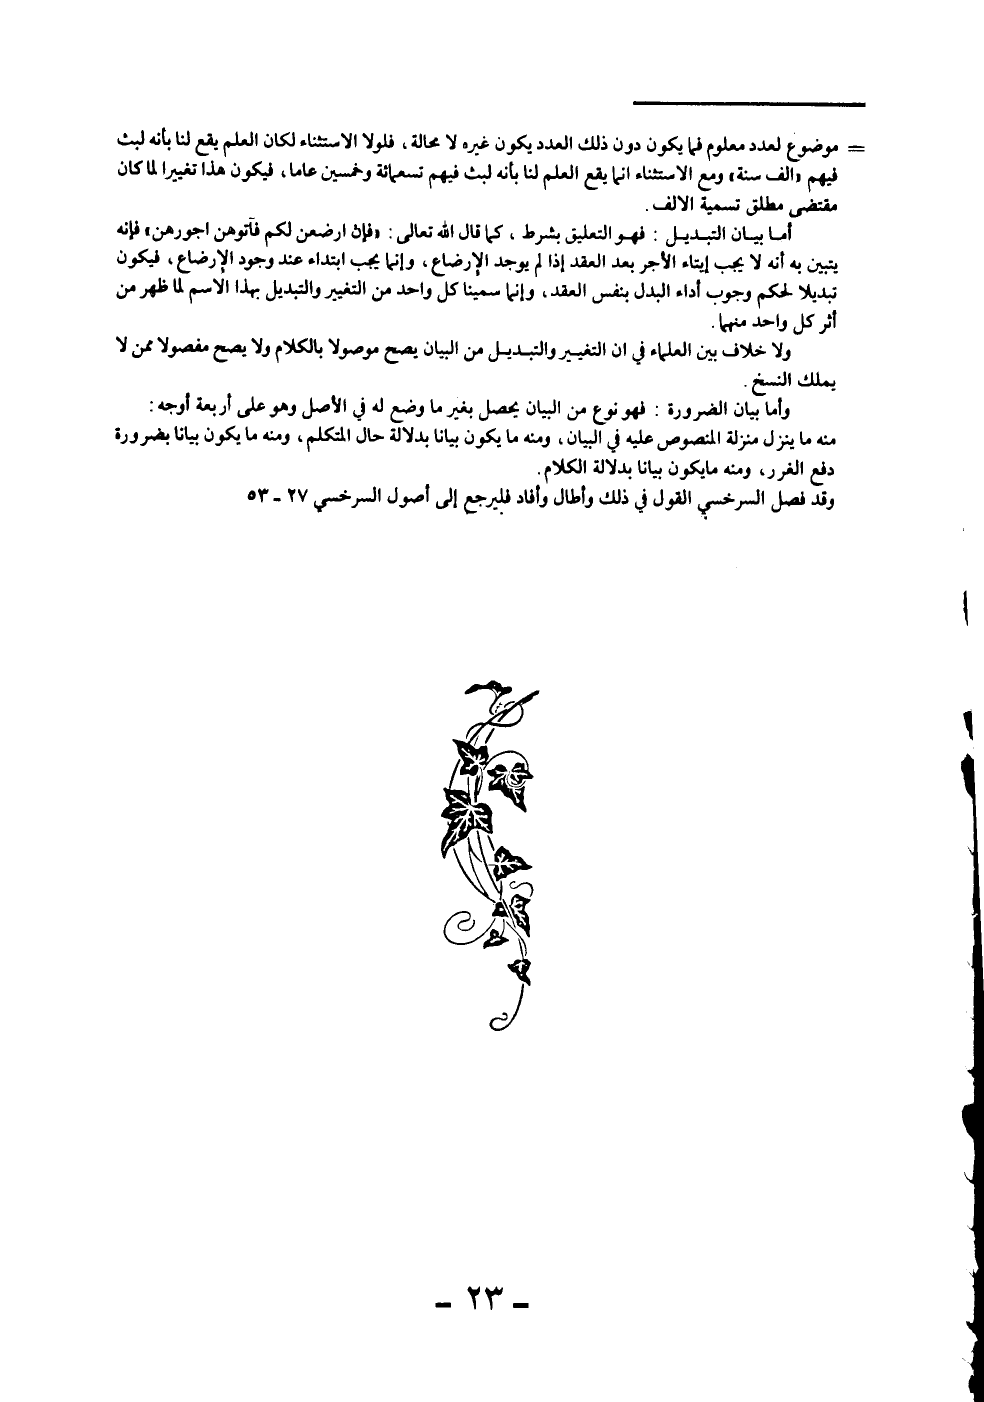 = موضوع لعدد معلوم فما يكون دون ذلك العدد يكون غيره لا محالة ، فلولا الاستثناء لكان العلم يقع لنا بأنه لبث
فيهم «الف سنة» ومع الاستثناء انما يقع العلم لنا بأنه لبث فيهم تسعمائة وخمسين عاما ، فيكون هذا تغييرا لما كان
مقتضى مطلق تسمية الالف .
أمـا بيـان التبـديـل : فهـو التعليق بشرط ، كما قال الله تعالى : «فإن ارضعن لكم فآتوهن اجورهن» فإنه
يتبين به أنه لا يجب إيتاء الأجر بعد العقد إذا لم يوجد الإرضاع ، وإنما يجب ابتداء عند وجود الإرضاع ، فيكون
تبديلا لحكم وجوب أداء البدل بنفس العقد ، وإنما سمينا كل واحد من التغيير والتبديل بهذا الاسم لما ظهر من
أثر كل واحد منهما .
ولا خلاف بين العلماء في ان التغيـير والتبـديـل من البيان يصح موصولا بالكلام ولا يصح مفصولا ممن لا
يملك النسخ .
وأما بيان الضرورة : فهو نوع من البيان يحصل بغير ما وضع له في الأصل وهو على أربعة أوجه :
منه ما ينزل منزلة المنصوص عليه في البيان ، ومنه ما يكون بيانا بدلالة حال المتكلم ، ومنه ما يكون بيانا بضرورة
دفع الغرر ، ومنه مايكون بيانا بدلالة الكلام .
وقد فصل السرخسي القول في ذلك وأطال وأفاد فليرجع إلى أصول السرخسي ٢٧ - ٥٣
- ٢٣ -